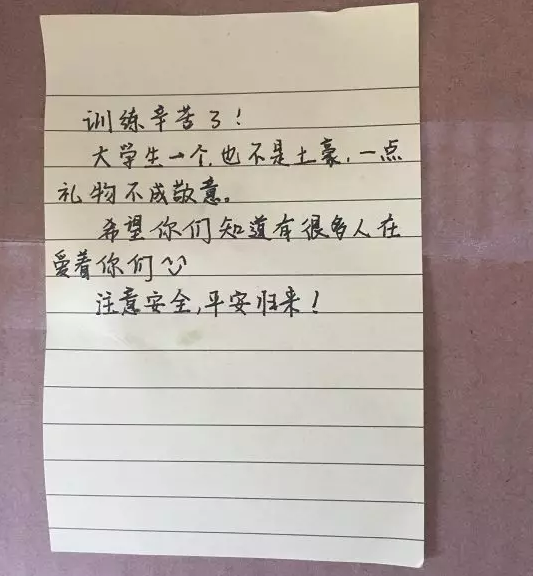 训练辛苦了！
大学生一个,也不是土豪,一点
礼物不成敬意。
希望你们知道有很多人在
爱着你们
注意安全,平安归来！